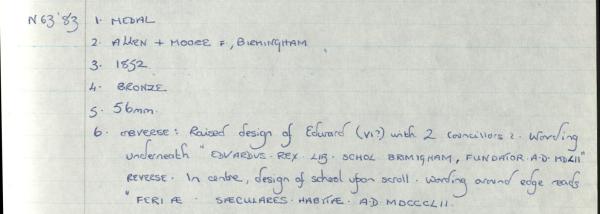 N63'83 1. MEDAL
2. ALLEN + MOORE F., BIRMINGHAM
3. 1852
4. BRONZE
5. 56mm.
6. OBVERSE: Raised design of Edward (VI?) with 2 councillors?. Wording
underneath "EDVARDVS. REX. LIB. SCHOL BRMIGHAM, FUNDATOR. A.D. MDLII"
REVERSE. In centre, design of school upon scroll. Wording around edge reads
"FERI Æ. SÆCULARES. HABITÆ. A.D MDCCCLII.